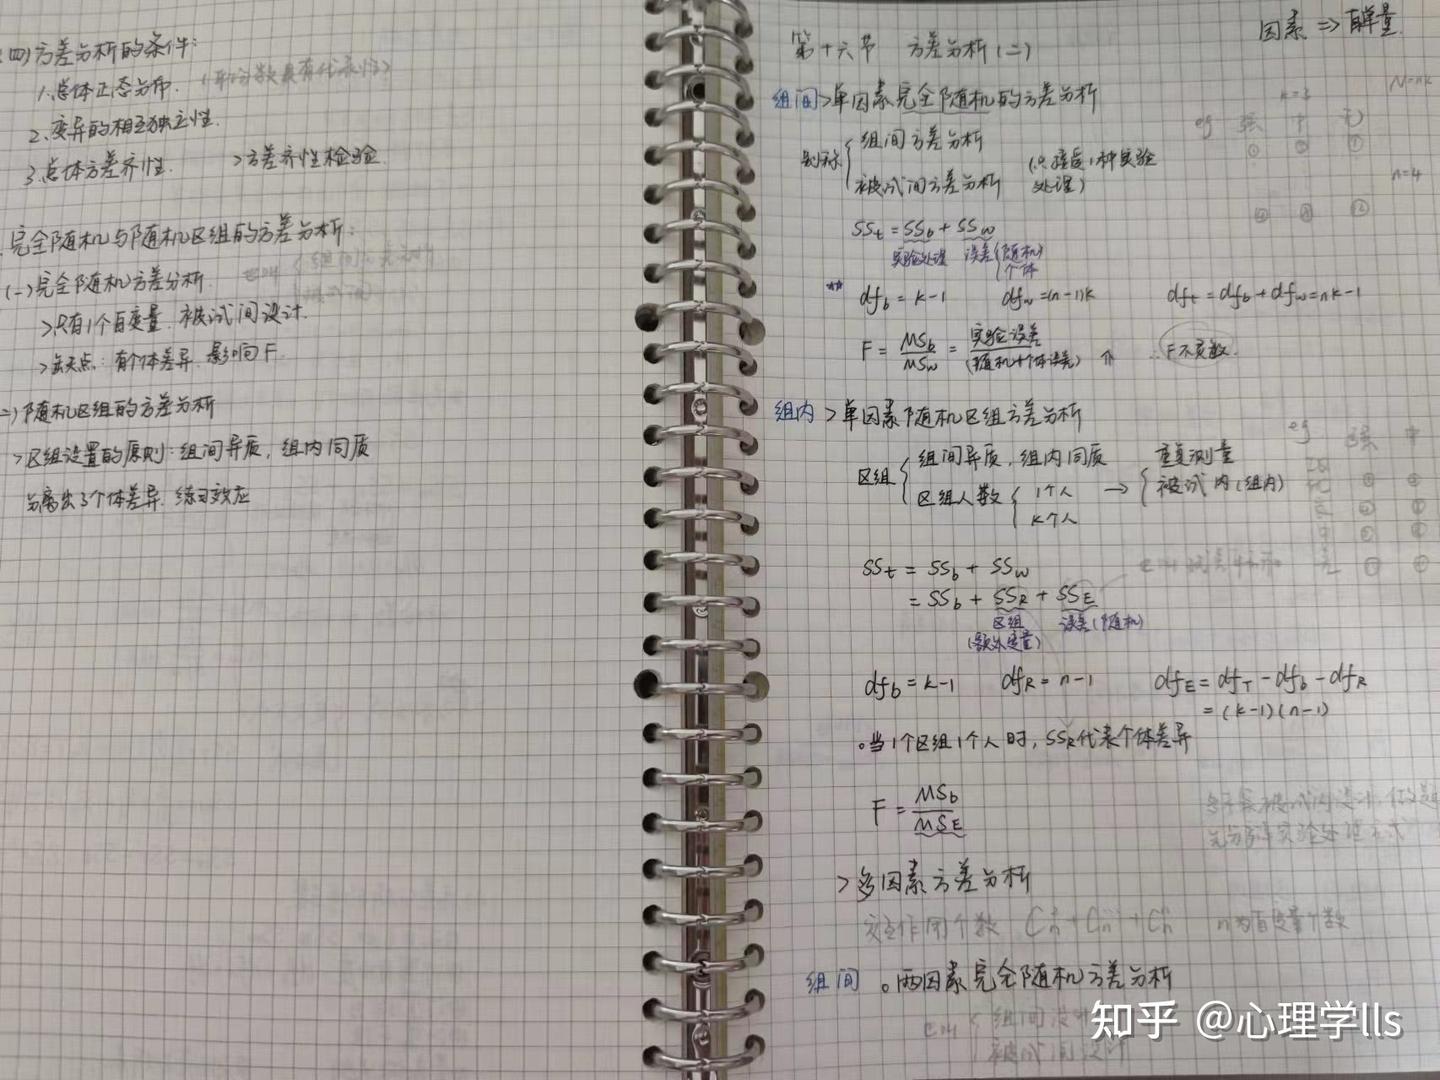 (四)方差分析的条件:
1.总体正态分布.
2.变异的相互独立性.
3.总体方差齐性. >方差齐性检验
完全随机与随机区组的方差分析:
(一)完全随机方差分析
>只有1个自变量. 被试间设计.
>缺点: 有个体差异. 影响F.
二)随机区组的方差分析
>区组设置的原则: 组间异质, 组内同质
分离出了个体差异. 练习效应
因素 => 自变量.
第十六节 方差分析(二)
组间>单因素完全随机的方差分析
k=3 N=nk
eg 强 中 无
① ② ①
n=4
别称 { 组间方差分析
被试间方差分析 (只接受1种实验
处理)
SSt = SSb + SSw
实验处理 误差(随机)
个体
** dfb = k-1 dfw = (n-1)k dft = dfb + dfw = nk-1
F = MSb/MSw = 实验误差/(随机+个体误差) ↑ ∴F不灵敏.
组内 >单因素随机区组方差分析
eg 强 中
区组 { 组间异质, 组内同质 重复测量
区组人数 { 1个人 → { 被试内(组内)
k个人
SSt = SSb + SSw
= SSb + SSR + SSE
区组 误差(随机)
(额外变量)
dfb = k-1 dfR = n-1 dfE = dfT - dfb - dfR
= (k-1)(n-1)
。当1个区组1个人时, SSR代表个体差异
F = MSb/MSE
>多因素方差分析
交互作用个数 n为自变量个数
组间 。两因素完全随机方差分析
组间设计
被试间设计
知乎 @心理学lls